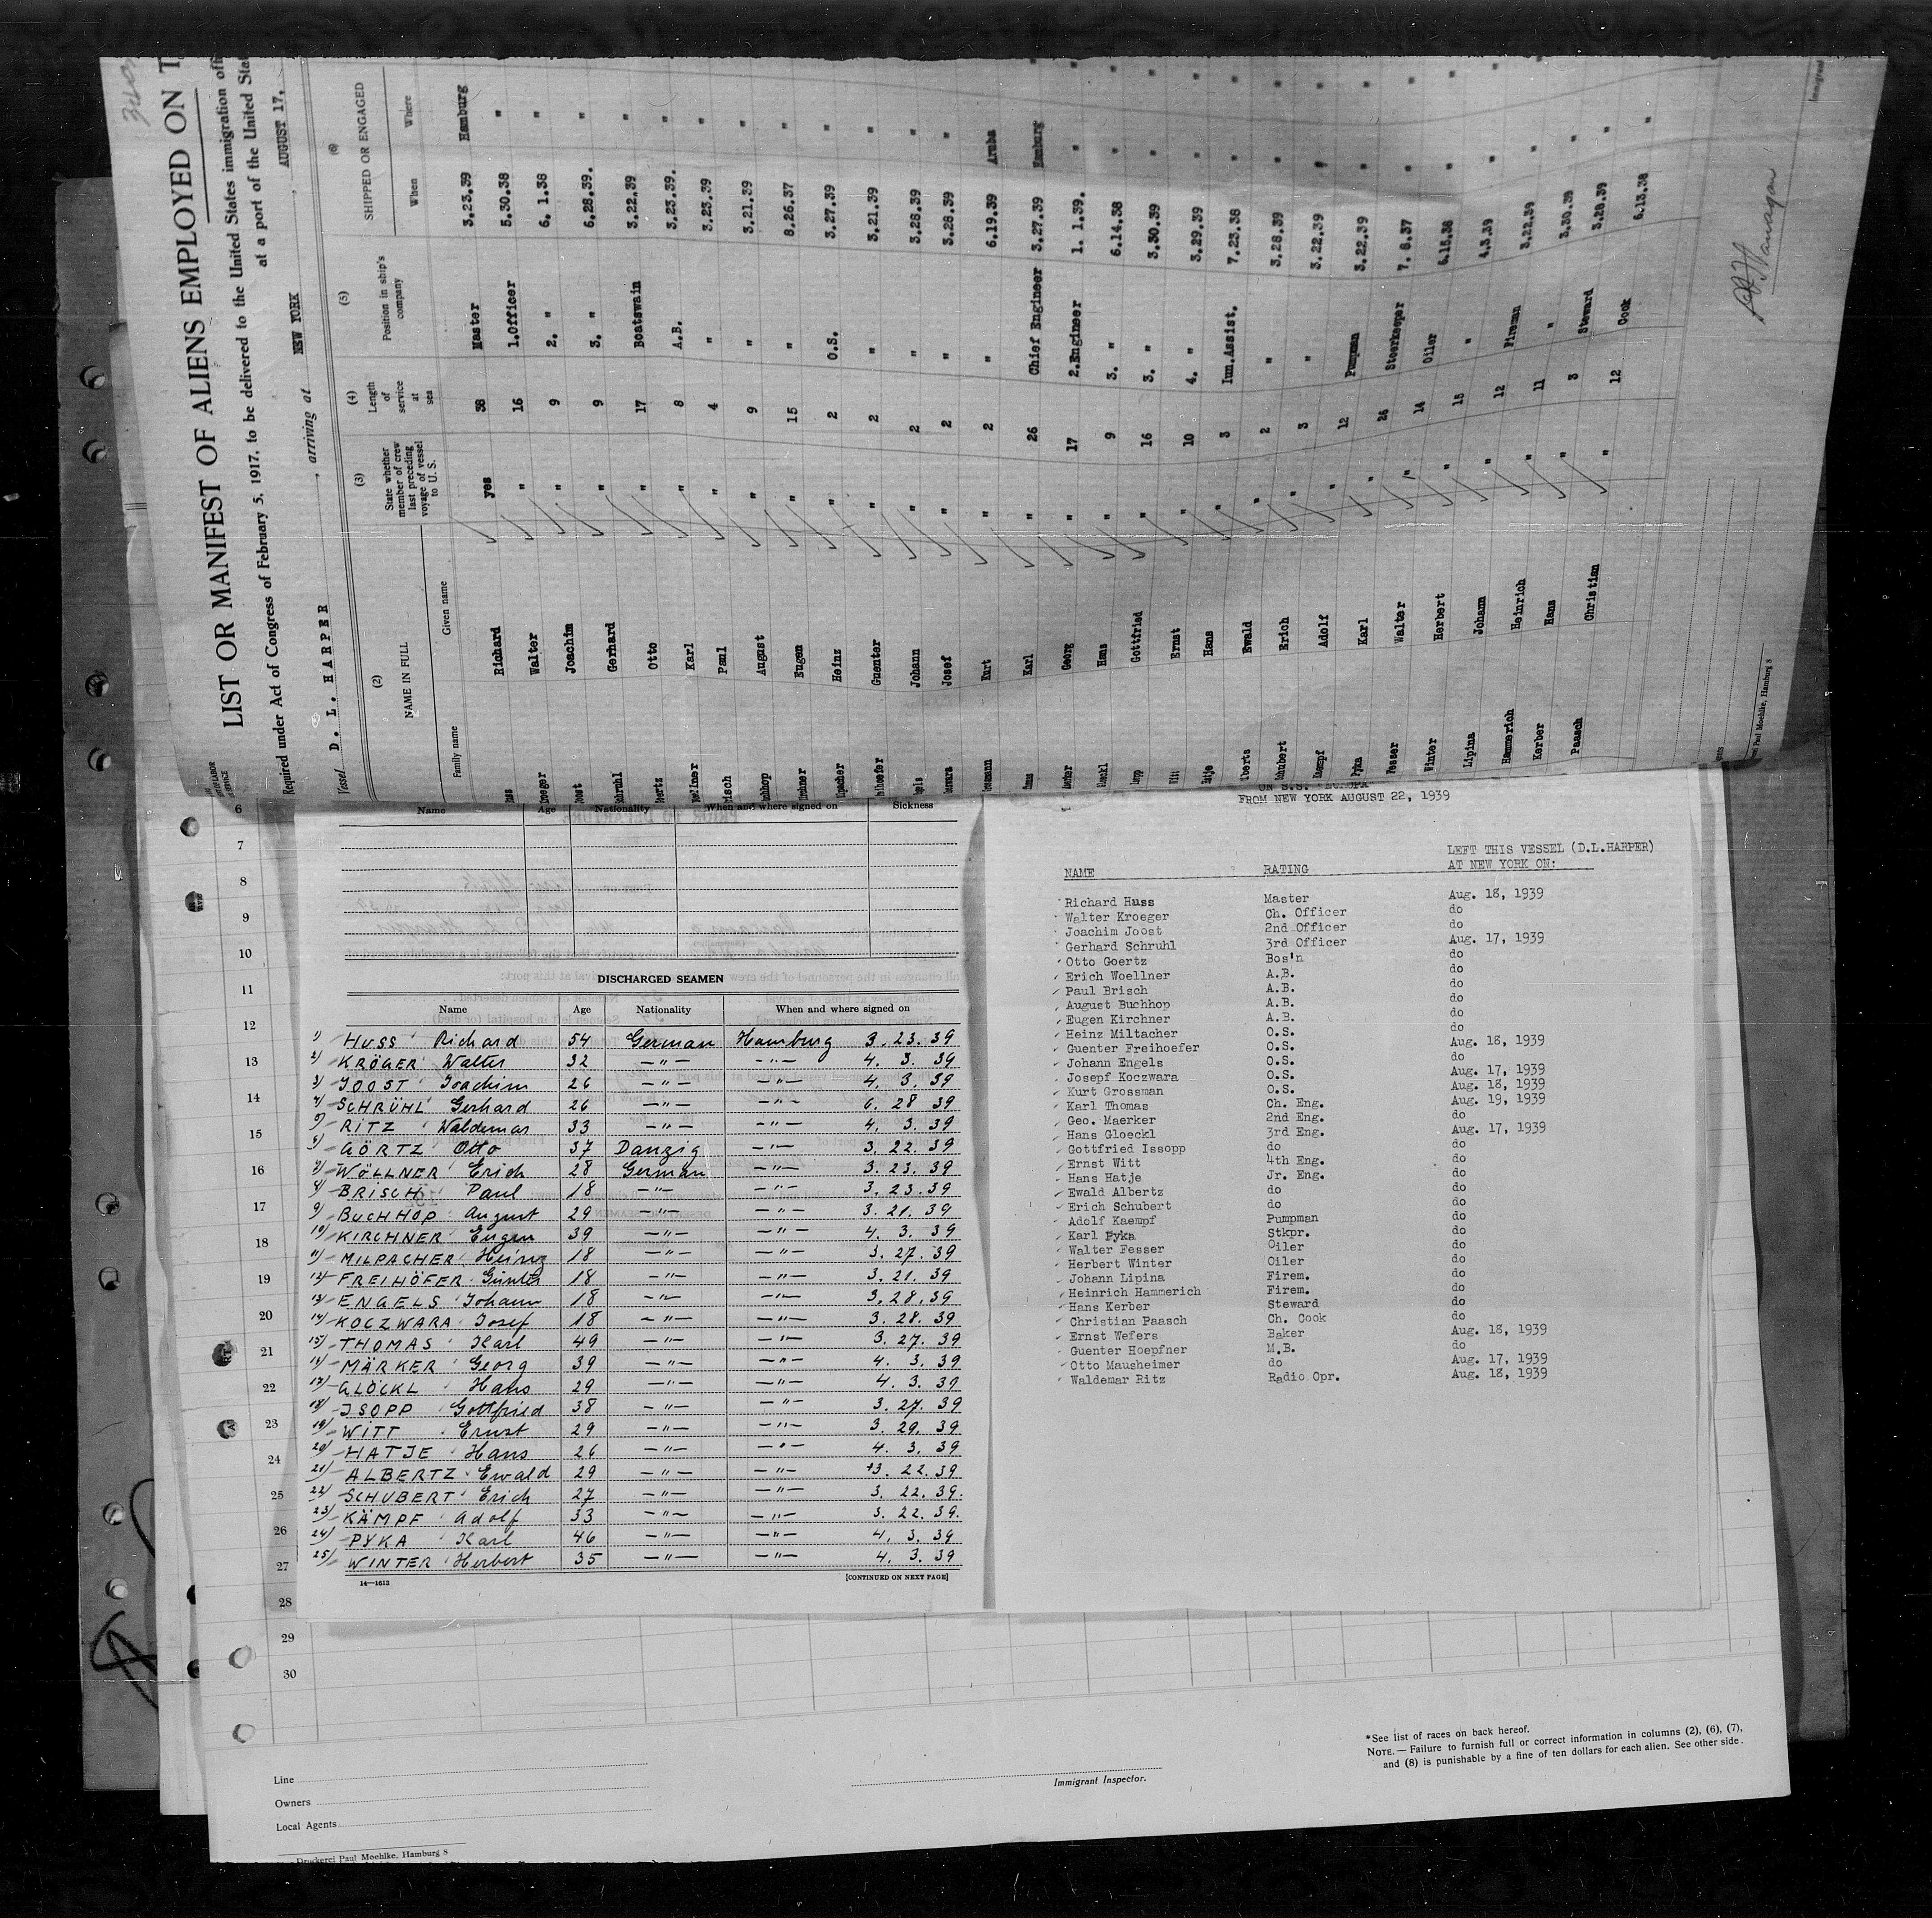 LIST OR MANIFEST OF ALIENS EMPLOYED ON
Required under Act of Congress of February 5, 1917, to be delivered to the United States immigration
at a port of the United
Vessel D. L. HARPER , arriving at NEW YORK , AUGUST 17,
(2) (3) (4) (5) (6)
NAME IN FULL State whether member of crew last preceding voyage of vessel to U. S. Length of service at sea Position in ship's company SHIPPED OR ENGAGED
Family name Given name When Where
Richard yes 38 Master 3.23.39 Hamburg
Walter " 16 1.Officer 5.30.38 "
Joachim " 9 2. " 6. 1.38 "
Gerhard " 9 3. " 6.28.39. "
Otto " 17 Boatswain 3.22.39 "
Karl " 8 A.B. 3.23.39. "
Paul " 4 " 3.23.39 "
August " 9 " 3.21.39 "
Eugen " 15 " 8.26.37 "
Heinz " 2 O.S. 3.27.39 "
Guenter " 2 " 3.21.39 "
Johann " 2 " 3.28.39 "
Josef " 2 " 3.28.39 "
Kurt " 2 " 6.19.39 Aruba
Karl " 26 Chief Engineer 3.27.39 Hamburg
Georg " 17 2.Engineer 1. 1.39. "
Hans " 9 3. " 6.14.38 "
Gottfried " 16 3. " 3.30.39 "
Ernst " 10 4. " 3.29.39 "
Hans " 3 Iun.Assist. 7.23.38 "
Ewald " 2 " 3.28.39 "
Erich " 3 " 3.22.39 "
Adolf " 12 Pumpman 3.22.39 "
Pyka Karl " 26 Stoerkeeper 7. 8.37 "
Fesser Walter " 14 Oiler 6.15.38 "
Winter Herbert " 15 " 4.3.39 "
Lipina Johann " 12 Fireman 3.22.39 "
Hammerich Heinrich " 11 " 3.30.39 "
Kerber Hans " 3 Steward 3.28.39 "
Paasch Christian " 12 Cook 6.13.38 "
Paul Moehlke, Hamburg 8
Immigrant
6
7
8
9
10
11
12
13
14
15
16
17
18
19
20
21
22
23
24
25
26
27
28
29
30
Name Age Nationality When and where signed on Sickness
DISCHARGED SEAMEN
Name Age Nationality When and where signed on
1) HUSS Richard 54 German Hamburg 3. 23. 39
2) KRÖGER Walter 32 -"- -"- 4. 3. 39
3) JOOST Joachim 26 -"- -"- 4. 3. 39
4) SCHRÜHL Gerhard 26 -"- -"- 6. 28 39
5) RITZ Waldemar 33 -"- -"- 4. 3. 39
6) GÖRTZ Otto 37 Danzig -"- 3. 22. 39
7) WÖLLNER Erich 28 German -"- 3. 23. 39
8) BRISCH Paul 18 -"- -"- 3. 23. 39
9) BUCHHOP August 29 -"- -"- 3. 21. 39
10) KIRCHNER Eugen 39 -"- -"- 4. 3. 39
11) MILPACHER Heinz 18 -"- -"- 3. 27. 39
12) FREIHÖFER Günter 18 -"- -"- 3. 21. 39
13) ENGELS Johann 18 -"- -"- 3. 28. 39
14) KOCZWARA Josef 18 -"- -"- 3. 28. 39
15) THOMAS Karl 49 -"- -"- 3. 27. 39
16) MÄRKER Georg 39 -"- -"- 4. 3. 39
17) GLÖCKL Hans 29 -"- -"- 4. 3. 39
18) ISOPP Gottfried 38 -"- -"- 3. 27. 39
19) WITT Ernst 29 -"- -"- 3. 29. 39
20) HATJE Hans 26 -"- -"- 4. 3. 39
21) ALBERTZ Ewald 29 -"- -"- 3. 22. 39
22) SCHUBERT Erich 27 -"- -"- 3. 22. 39.
23) KÄMPF Adolf 33 -"- -"- 3. 22. 39.
24) PYKA Karl 46 -"- -"- 4. 3. 39
25) WINTER Herbert 35 -"- -"- 4. 3. 39
14—1613 [CONTINUED ON NEXT PAGE]
FROM NEW YORK AUGUST 22, 1939
LEFT THIS VESSEL (D.L.HARPER)
NAME RATING AT NEW YORK ON:
Richard Huss Master Aug. 18, 1939
Walter Kroeger Ch. Officer do
Joachim Joost 2nd Officer do
Gerhard Schruhl 3rd Officer Aug. 17, 1939
Otto Goertz Bos'n do
Erich Woellner A.B. do
Paul Brisch A.B. do
August Buchhop A.B. do
Eugen Kirchner A.B. do
Heinz Miltacher O.S. do
Guenter Freihoefer O.S. Aug. 18, 1939
Johann Engels O.S. do
Josepf Koczwara O.S. Aug. 17, 1939
Kurt Grossman O.S. Aug. 18, 1939
Karl Thomas Ch. Eng. Aug. 19, 1939
Geo. Maerker 2nd Eng. do
Hans Gloeckl 3rd Eng. Aug. 17, 1939
Gottfried Issopp do do
Ernst Witt 4th Eng. do
Hans Hatje Jr. Eng. do
Ewald Albertz do do
Erich Schubert do do
Adolf Kaempf Pumpman do
Karl Pyka Stkpr. do
Walter Fesser Oiler do
Herbert Winter Oiler do
Johann Lipina Firem. do
Heinrich Hammerich Firem. do
Hans Kerber Steward do
Christian Paasch Ch. Cook do
Ernst Wefers Baker Aug. 18, 1939
Guenter Hoepfner M.B. do
Otto Mausheimer do Aug. 17, 1939
Waldemar Ritz Radio Opr. Aug. 18, 1939
Line
Owners
Local Agents
Immigrant Inspector.
*See list of races on back hereof.
NOTE.— Failure to furnish full or correct information in columns (2), (6), (7),
and (8) is punishable by a fine of ten dollars for each alien. See other side.
Druckerei Paul Moehlke, Hamburg 8